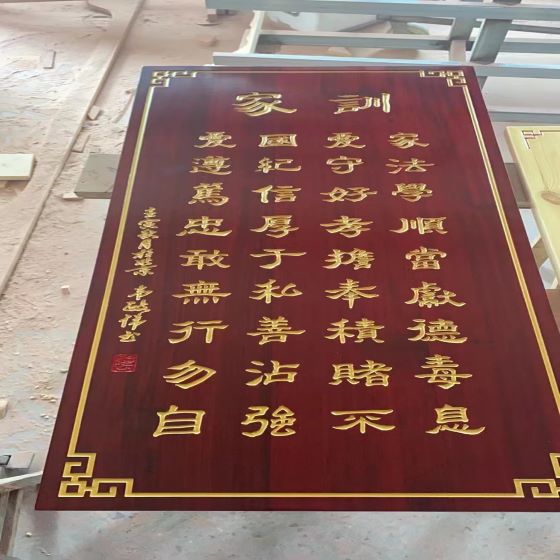 家訓
愛國愛家
遵紀守法
篤信好學
忠厚孝順
敢于擔當
無私奉獻
行善積德
勿沾賭毒
自強不息
壬寅秋月